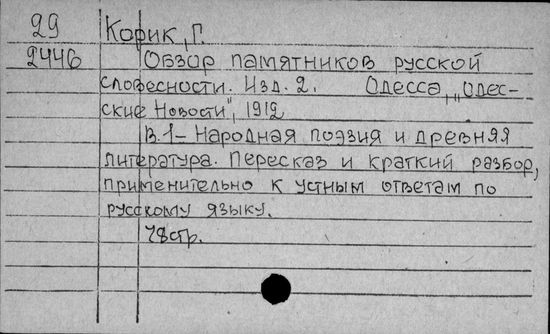 29 Корик, Г.
2446 Обзор памятников русской
словесности. Изд. 2. Одесса, „Одес-
ские Новости", 1912
В.1 - Народная поэзия и древняя
литература. Пересказ и краткий разбор,
применительно к устным ответам по
русскому языку.
78стр.